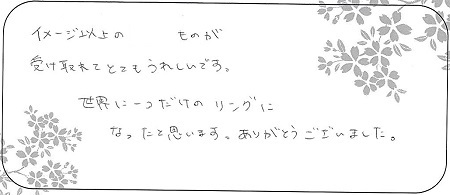 イメージ以上の ものが
受け取れてとてもうれしいです。
世界に一つだけの リングに
なったと思います。ありがとうございました。